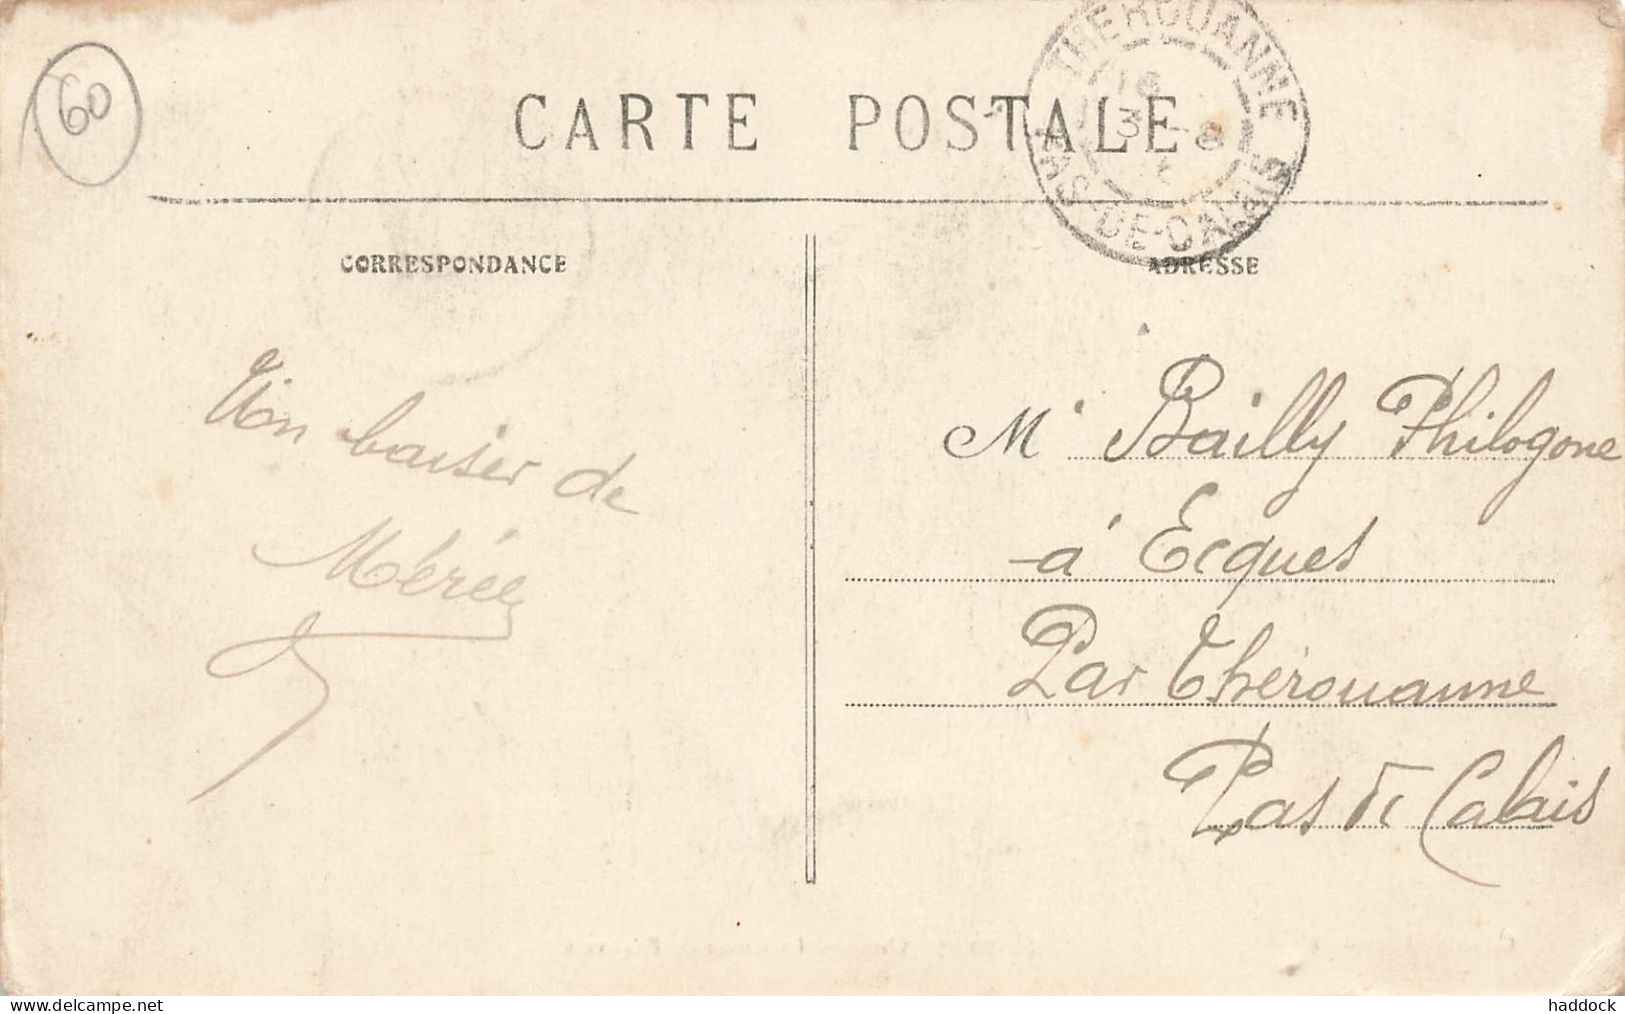 60
CARTE POSTALE
THEROUANNE
PAS-DE-CALAIS
CORRESPONDANCE
ADRESSE
Un baiser de
Mérée
M' Bailly Philogone
à Ecques
Par Thérouanne
Pas de Calais
www.delcampe.net
haddock